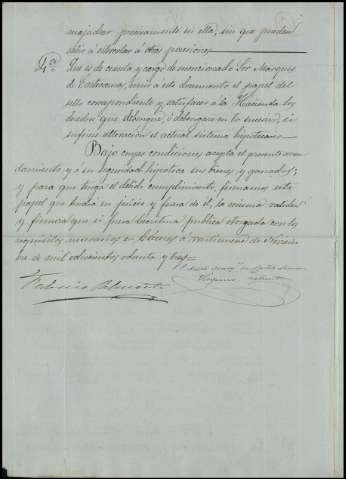 majadear precisamente en ella, sin que puedan
salir á estercolar á otras posesiones
14ª Que es de cuenta y cargo de mencionado Sor Marques
de Castroserna, unir á este documento el papel del
sello correspondiente y satisfacer á la Hacienda los
derechos que debengue, ó debengara en lo sucesivo, si
sufriese alteracion el actual sistema hipotecario
Bajo cuyas condiciones acepta el presente arren
damiento, y á su seguridad hipoteca sus bienes y ganados;
y para que tenga el debido cumplimiento, firmamos este
papel que tendrá en juicio y fuera de él, la misma validez
y firmeza que si fuera escritura publica otorgada con los
requisitos necesarios en Cáceres á veintinueve de
de mil ochocientos ochenta y tres